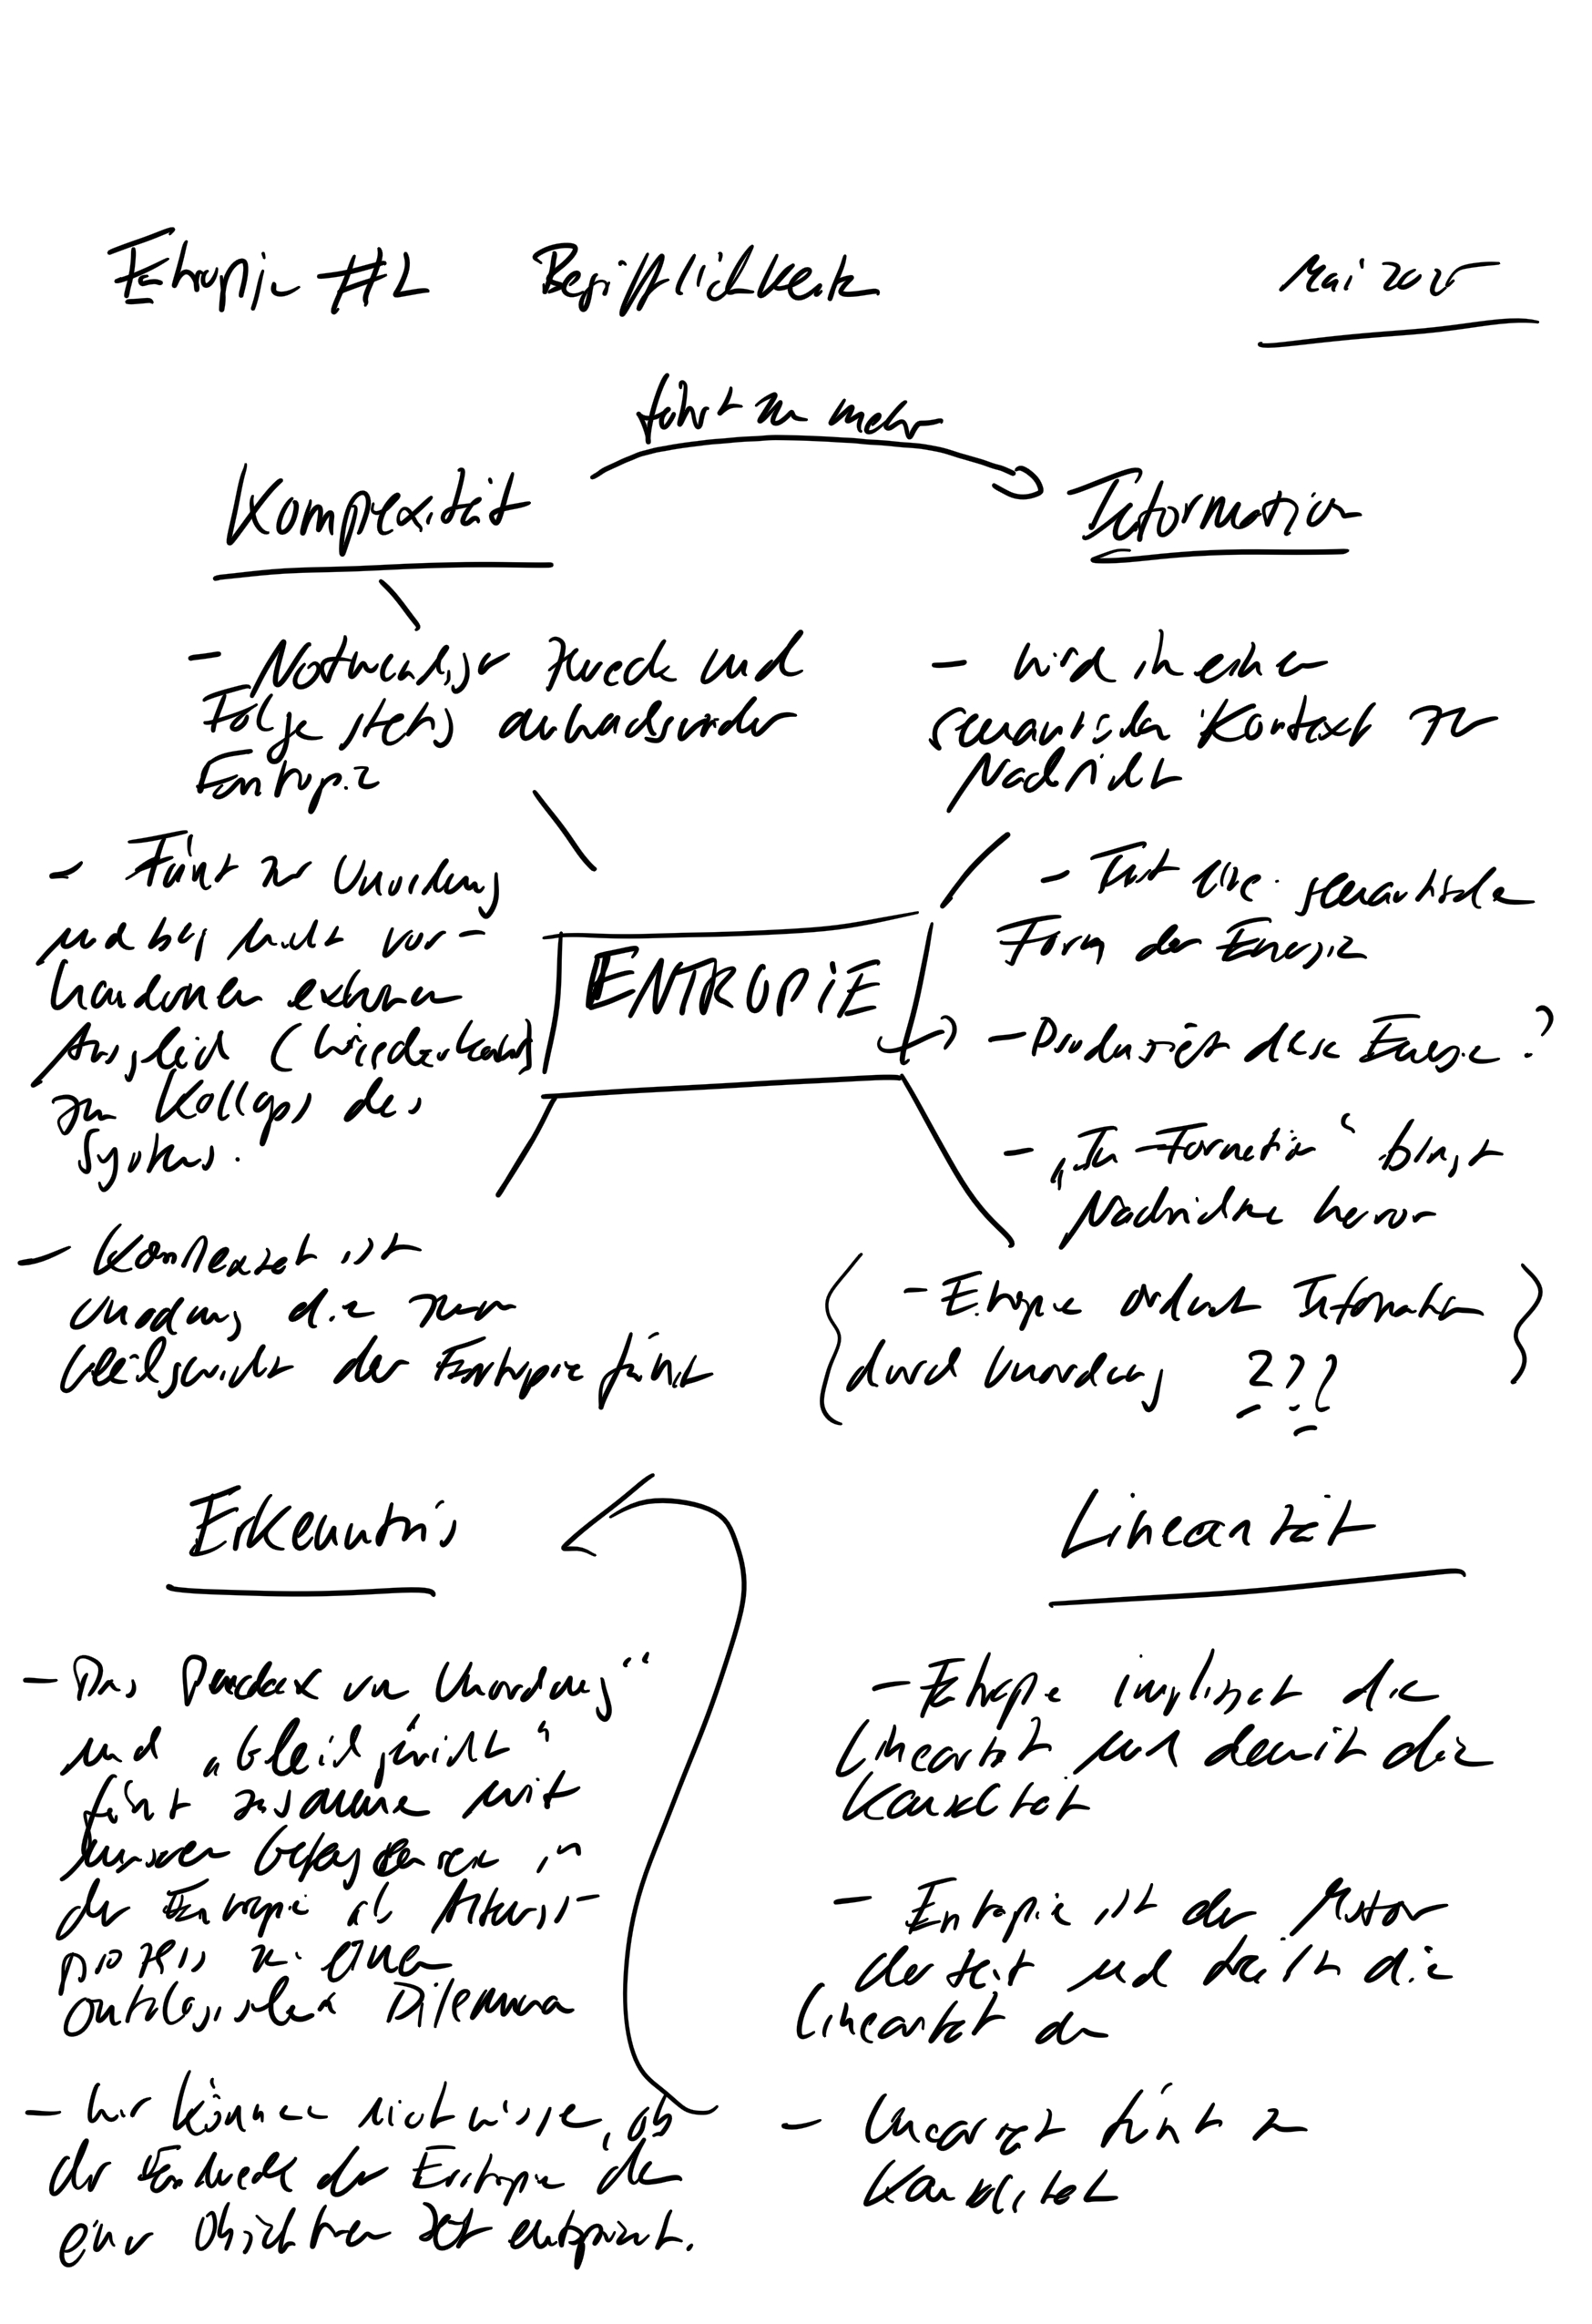 Entropie #2 Begrifflichkeit
Mai 2025
führt zu mehr
Komplexität
Information
- Notwendiger Zweck und
Folge stets anwachsender
Entropie
- Führt zu Unordnung
und bei nicht vor-
handenen externen
Ausgleich (Wiederkehr)
zum Kollaps des
Systems.
- Komplexität ist
Unordnung die zum
Gleichgewicht der Entropie führt
- wird in einem
semantischen Kontext zur
Nachricht
- Ist eine semantische
Form der Energie
- Produziert diese Energie?
- "In-Formation" bringt
Nachrichten hervor
- Entropie ordnet Information
durch Unordnung ???
ENTROPIE
Erkenntnis
- Das Paradox von Unordnung"
und "Gleichgewicht"
führt zusammen mit
unserem Gefangensein in
der Entropie als Alterungs-
prozess zu einem
ontologischen Dilemma
- Wir können nicht wissen, ob
der Zweck der Entropie der
einer objektiven Zeit entspringt.
Linearität
- Entropie impliziert die
Linearität und damit die
Kausalität
- Entropie ist der Motor
der Zeit und treibt die
Linearität an
- Linearität führt zu
Kausalität